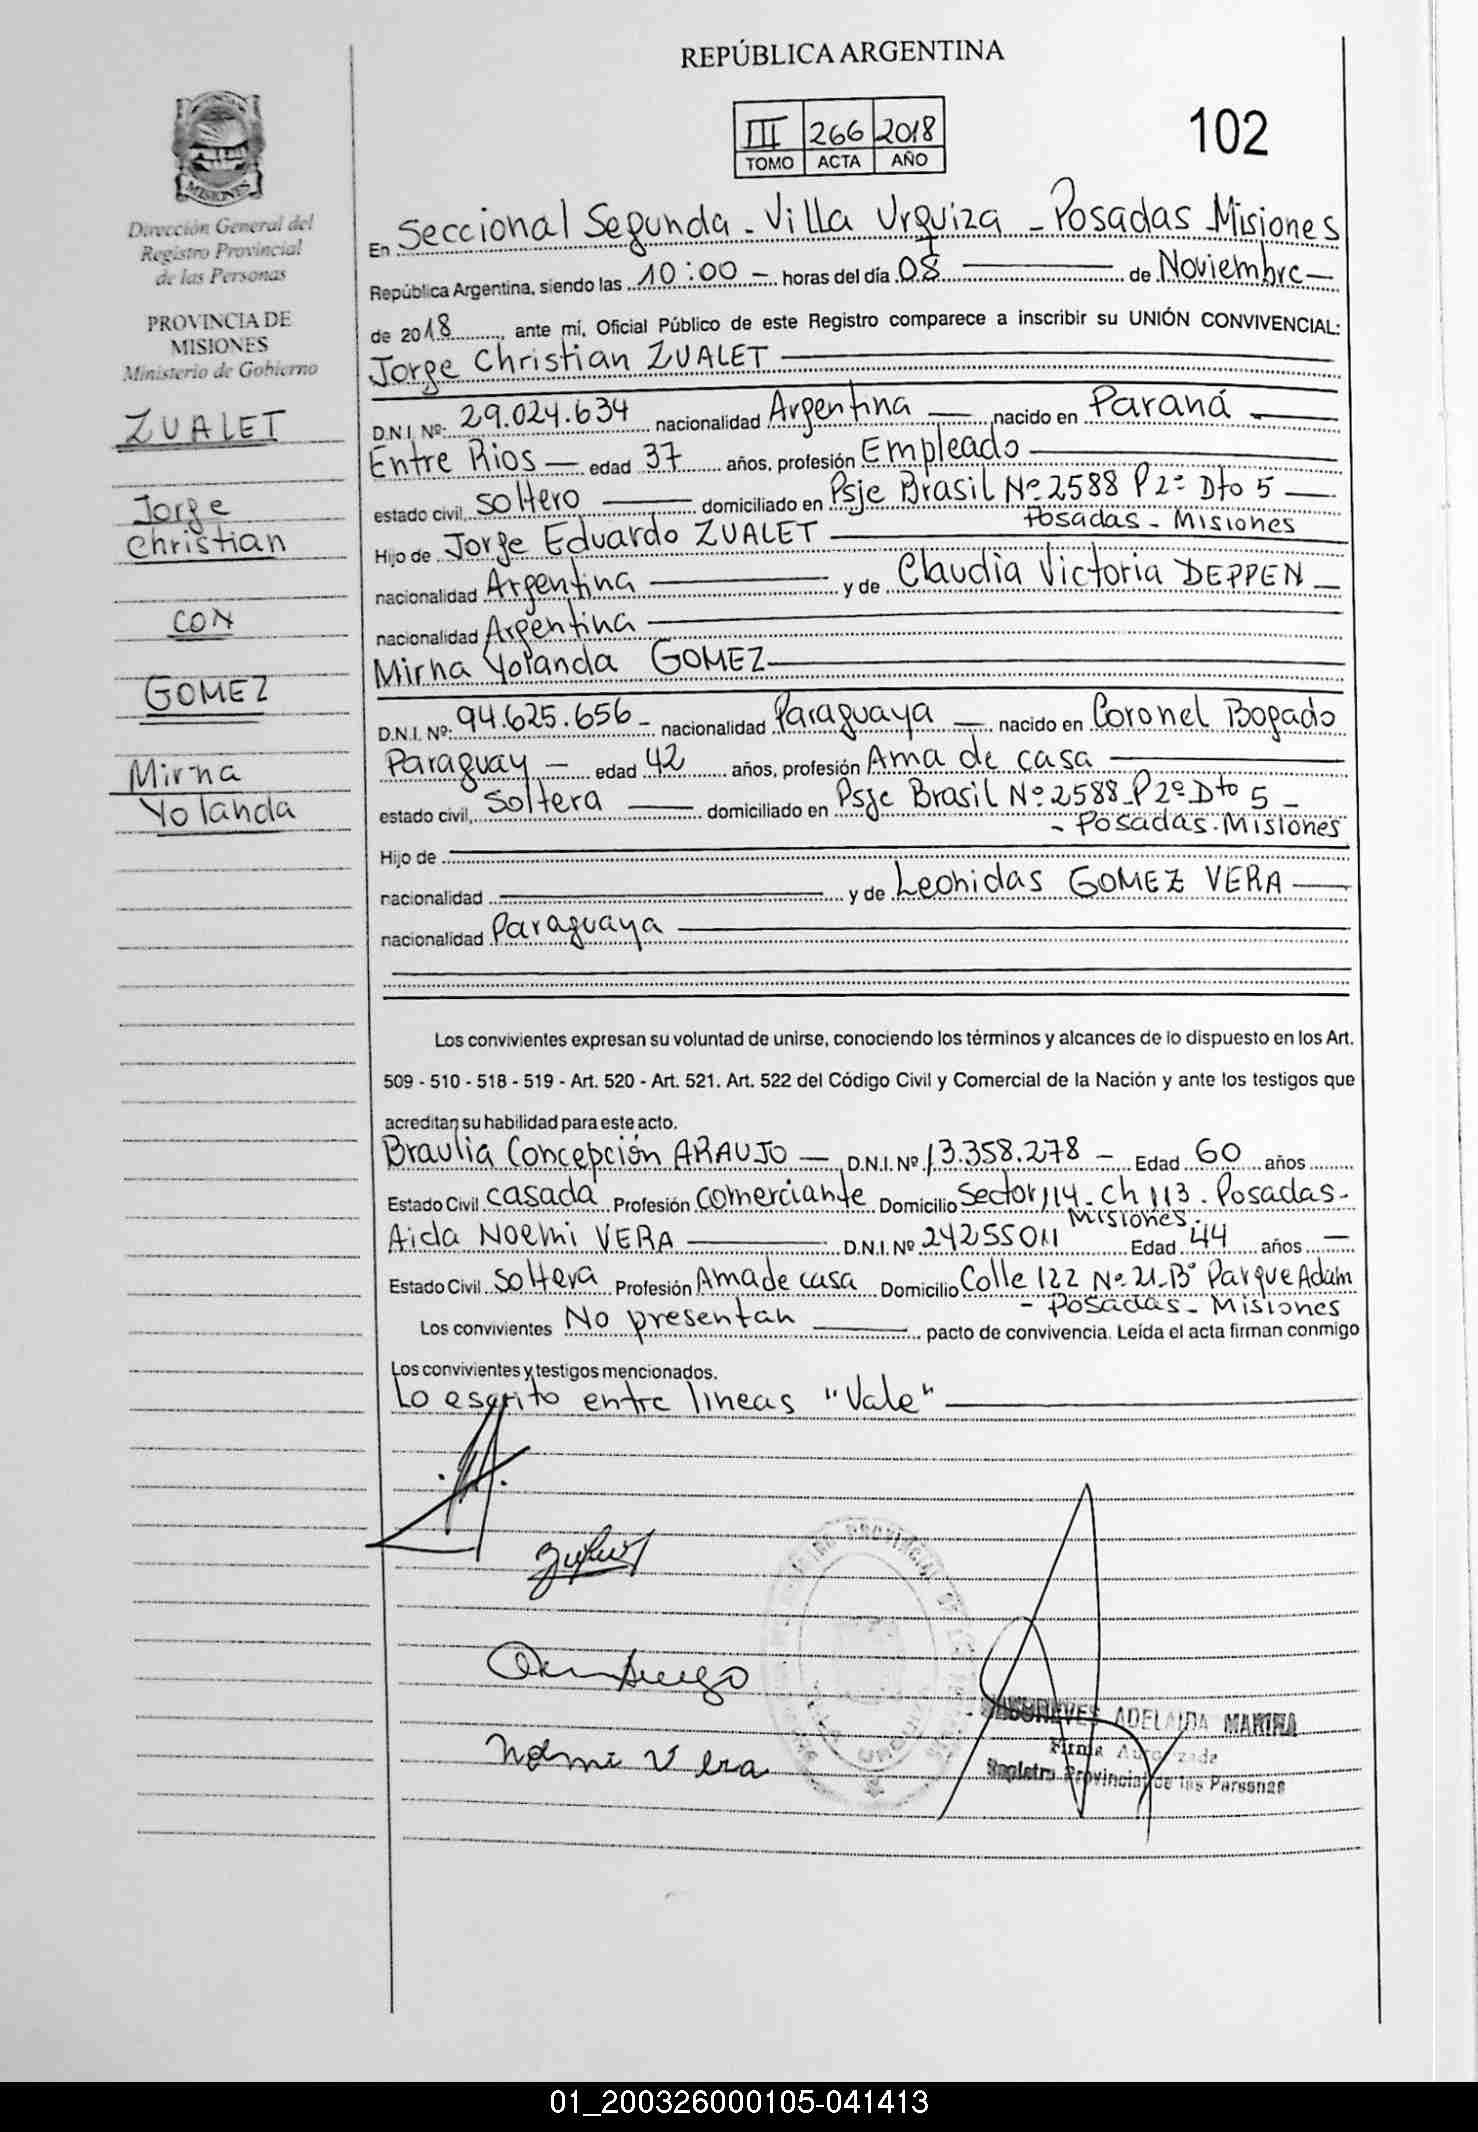 REPÚBLICA ARGENTINA
III 266 2018
TOMO ACTA AÑO
102
MISIONES
Dirección General del
Registro Provincial
de las Personas
PROVINCIA DE
MISIONES
Ministerio de Gobierno
ZUALET
Jorge
Christian
CON
GOMEZ
Mirna
Yolanda
En Seccional Segunda - Villa Urquiza - Posadas Misiones
República Argentina, siendo las 10:00 - horas del día 08 de Noviembre
de 2018, ante mí, Oficial Público de este Registro comparece a inscribir su UNIÓN CONVIVENCIAL:
Jorge Christian ZUALET
D.N.I. Nº: 29.024.634 nacionalidad Argentina nacido en Paraná
Entre Rios edad 37 años, profesión Empleado
estado civil, soltero domiciliado en Psje Brasil Nº 2588 P 2º Dto 5
Posadas - Misiones
Hijo de Jorge Eduardo ZUALET
nacionalidad Argentina y de Claudia Victoria DEPPEN
nacionalidad Argentina
Mirna Yolanda GOMEZ
D.N.I. Nº: 94.625.656 - nacionalidad Paraguaya nacido en Coronel Bogado
Paraguay - edad 42 años, profesión Ama de casa
estado civil, soltera domiciliado en Psje Brasil Nº 2588 - P 2º Dto 5 -
- Posadas - Misiones
Hijo de
nacionalidad y de Leonidas GOMEZ VERA
nacionalidad Paraguaya
Los convivientes expresan su voluntad de unirse, conociendo los términos y alcances de lo dispuesto en los Art.
509 - 510 - 518 - 519 - Art. 520 - Art. 521. Art. 522 del Código Civil y Comercial de la Nación y ante los testigos que
acreditan su habilidad para este acto.
Braulia Concepción ARAUJO - D.N.I. Nº 13.358.278 - Edad 60 años
Estado Civil casada Profesión comerciante Domicilio Sector 114 - Ch 113 - Posadas -
Misiones.
Aida Noemi VERA D.N.I. Nº 24255011 Edad 44 años
Estado Civil soltera Profesión Ama de casa Domicilio Calle 122 Nº 21 - Bº Parque Adam
- Posadas - Misiones
Los convivientes No presentan pacto de convivencia. Leída el acta firman conmigo
Los convivientes y testigos mencionados.
Lo escrito entre lineas "Vale"
Noemi Vera
ADELAIDA MARINA
Firma Autorizada
Registro Provincial de las Personas
01_200326000105-041413